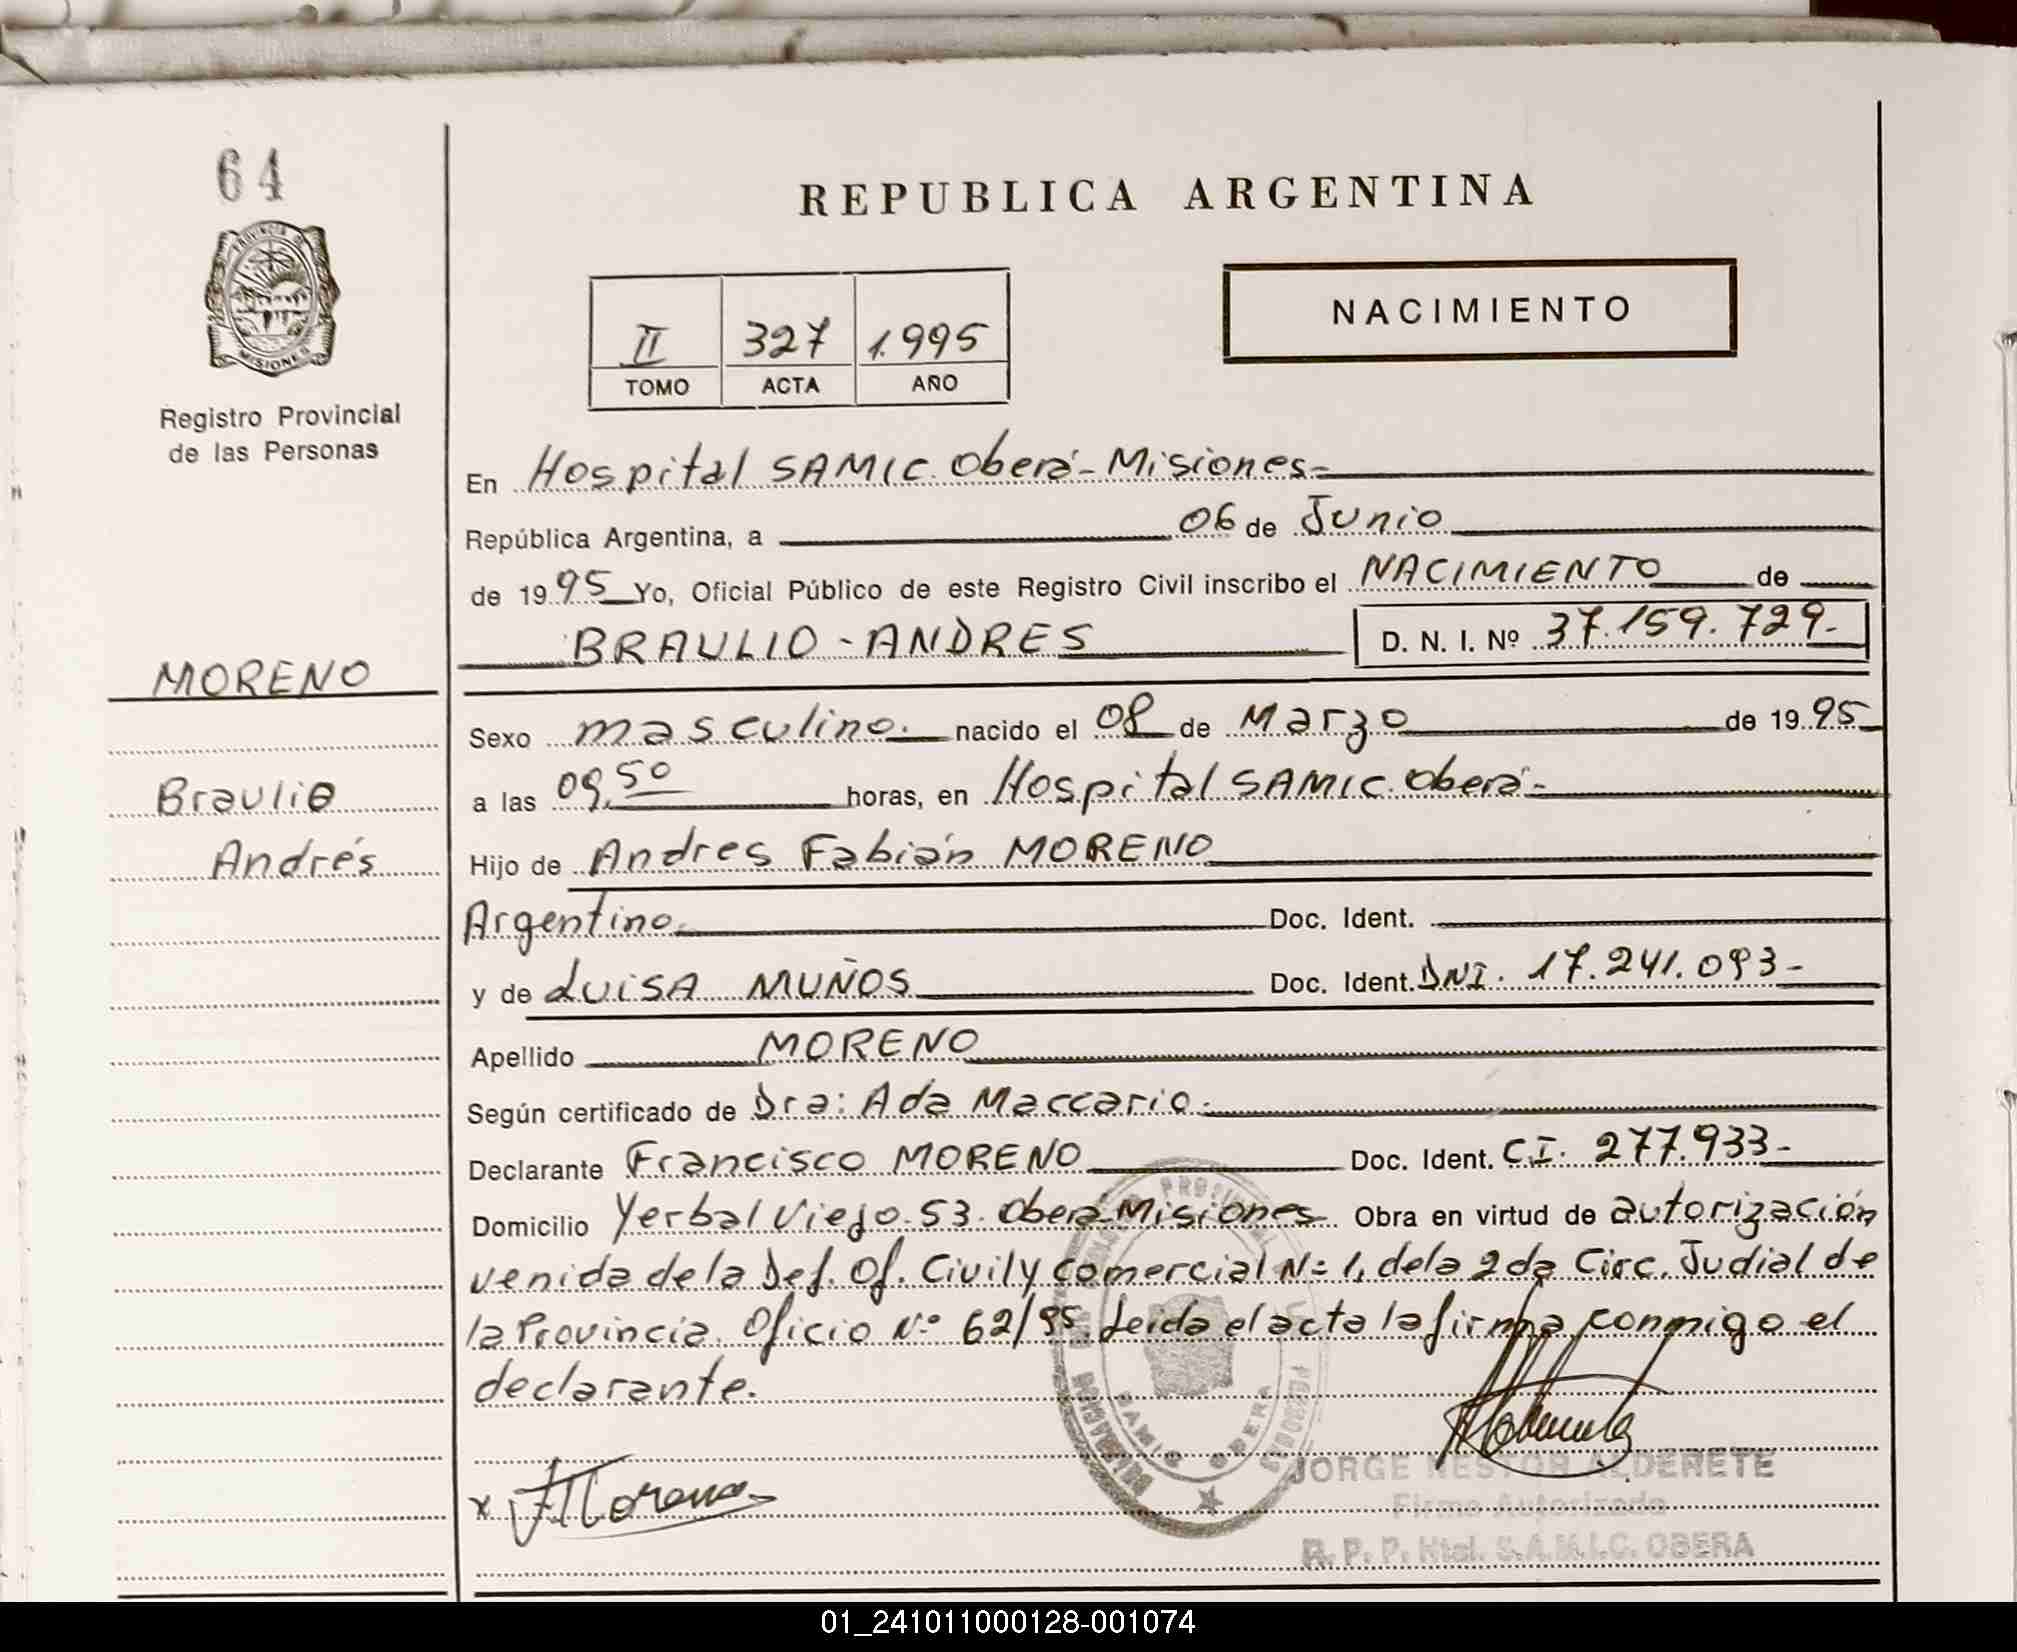 64
REPUBLICA ARGENTINA
PROVINCIA DE
MISIONES
Registro Provincial
de las Personas
II 327 1.995
TOMO ACTA AÑO
NACIMIENTO
En Hospital SAMIC. Oberá - Misiones -
República Argentina, a 06 de Junio
de 1995 Yo, Oficial Público de este Registro Civil inscribo el NACIMIENTO de
BRAULIO - ANDRES D. N. I. Nº 37.159.729.-
MORENO
Sexo masculino. nacido el 08 de Marzo de 1995
Braulio
a las 09,50 horas, en Hospital SAMIC. Oberá -
Andrés
Hijo de Andres Fabián MORENO
Argentino. Doc. Ident.
y de LUISA MUÑOS Doc. Ident. DNI. 17.241.093-
Apellido MORENO
Según certificado de Dra: Ada Maccario.
Declarante Francisco MORENO Doc. Ident. C.I. 277.933-
Domicilio Yerbal Viejo. 53. Oberá-Misiones Obra en virtud de autorización
venida de la Def. Of. Civil y Comercial Nº 1, de la 2da Circ. Judial de
la Provincia. Oficio Nº 62/95. Leida el acta la firma conmigo el
declarante.
x FMoreno
SAMIC OBERA
JORGE NESTOR ALDERETE
Firma Autorizada
R. P. P. Htal. S.A.M.I.C. OBERA
01_241011000128-001074